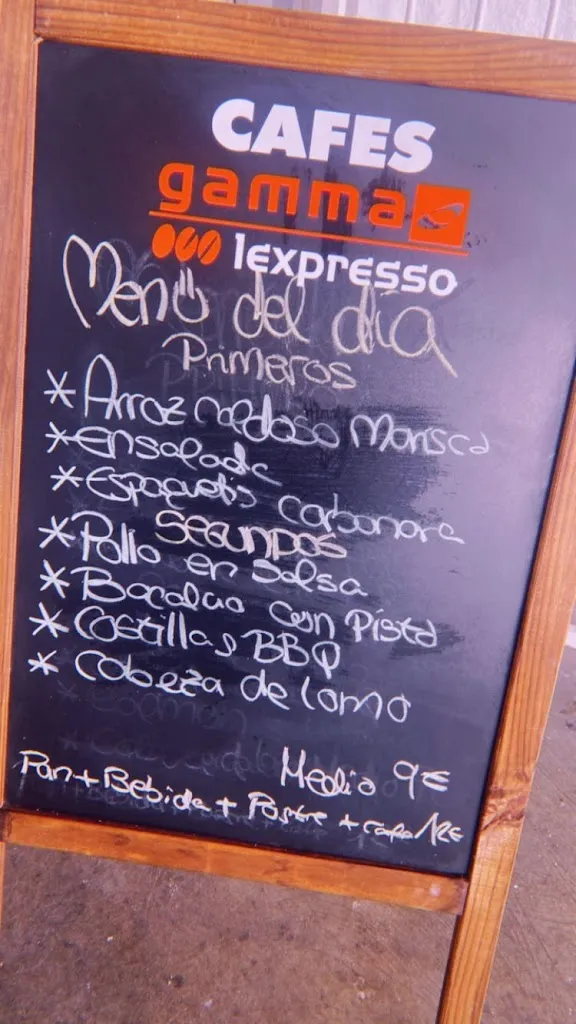 CAFES
gamma
1expresso
Menú del día
Primeros
* Arroz caldoso Marisco
* ensalada
* Espaguetis carbonara
Segundos
* Pollo en salsa
* Bacalao con Pisto
* Costillas BBQ
* Cabeza de lomo
Medio 9€
Pan + Bebida + Postre + cafe 12€